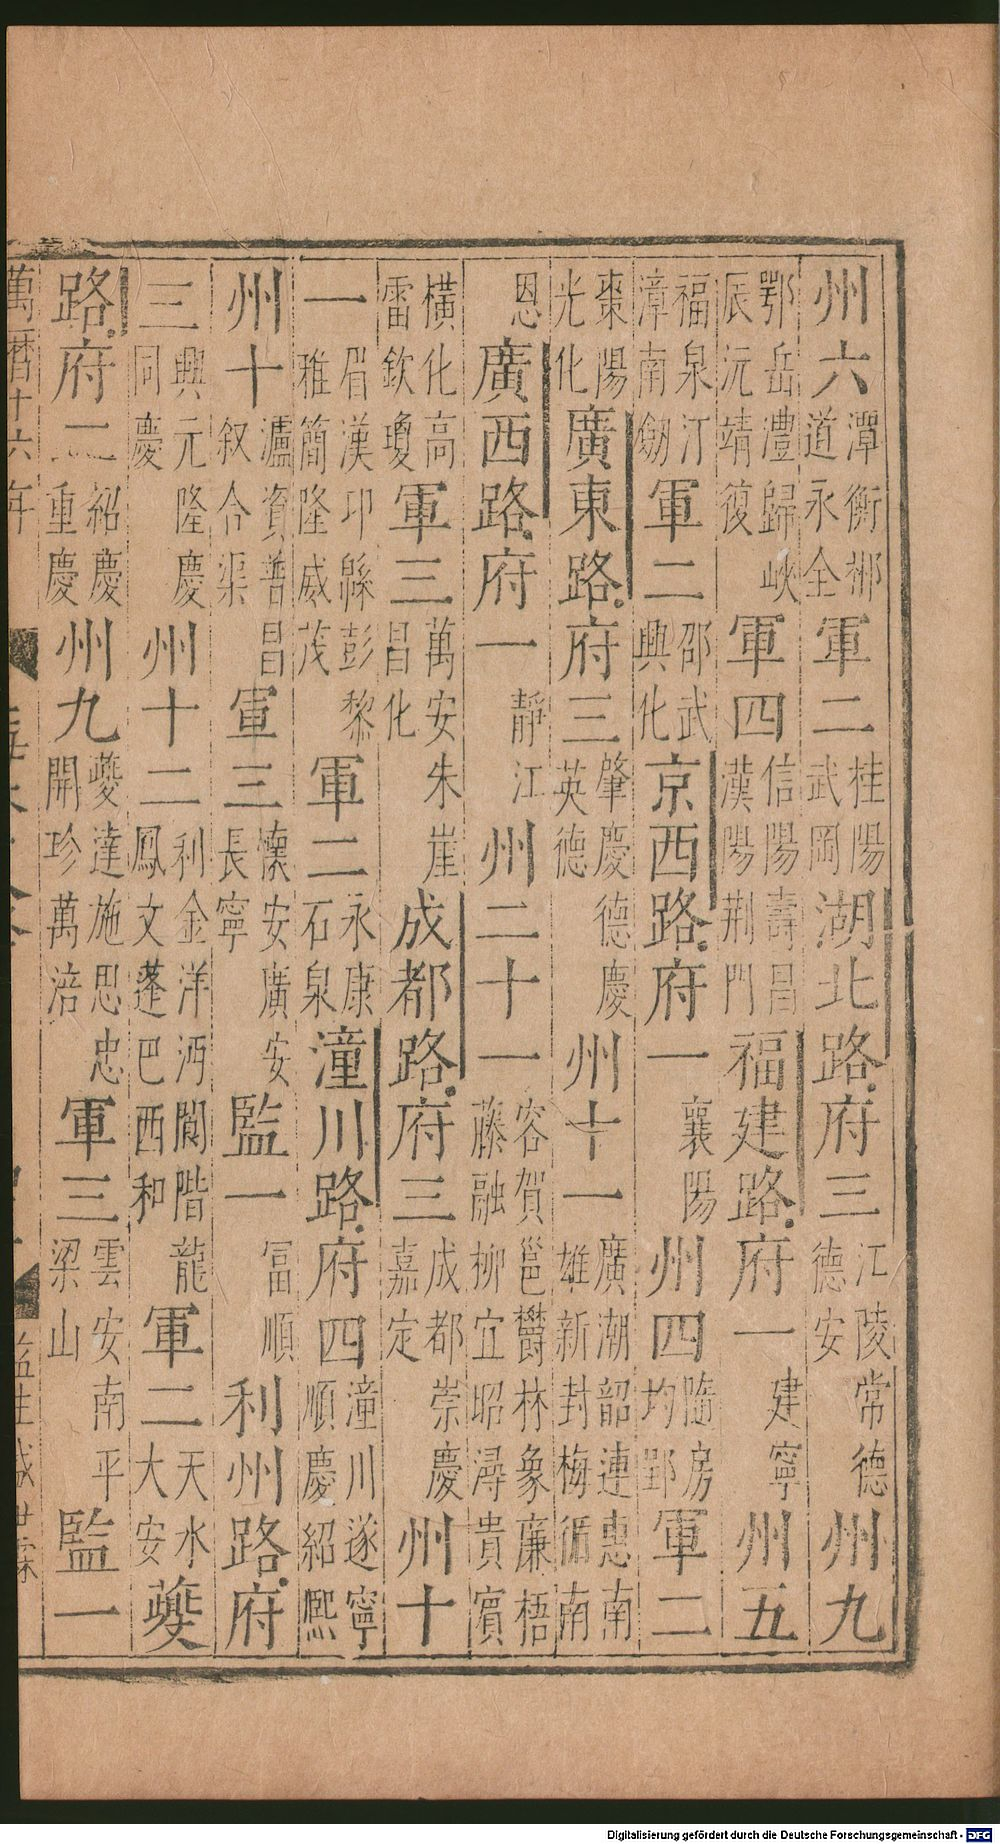 州六潭衡郴道永全軍二桂陽武岡湖北路府三江陵常德德安州九
鄂岳澧歸峽辰沅靖復軍四信陽壽昌漢陽荆門福建路府一建寧州五
福泉汀漳南劒軍二邵武興化京西路府一襄陽州四隨房均郢軍二
棗陽光化廣東路府三肇慶德慶英德州十一廣潮韶連惠南雄新封梅循南
恩廣西路府一靜江州二十一容賀邕欝林象廉梧藤融柳宜昭潯貴賔
橫化高雷欽瓊軍三萬安朱崖昌化成都路府三成都崇慶嘉定州十
一眉漢邛緜彭黎雅簡隆威茂軍二永康石泉潼川路府四潼川遂寧順慶紹熈
州十瀘資普昌叙合渠軍三懷安廣安長寧監一冨順利州路府
三興元隆慶同慶州十二利金洋沔閬階龍鳳文蓬巴西和軍二天水大安夔
路府二紹慶重慶州九夔達施思忠開珍萬涪軍三雲安南平梁山監一
萬曆十六年
監生
Digitalisierung gefördert durch die Deutsche Forschungsgemeinschaft - DFG